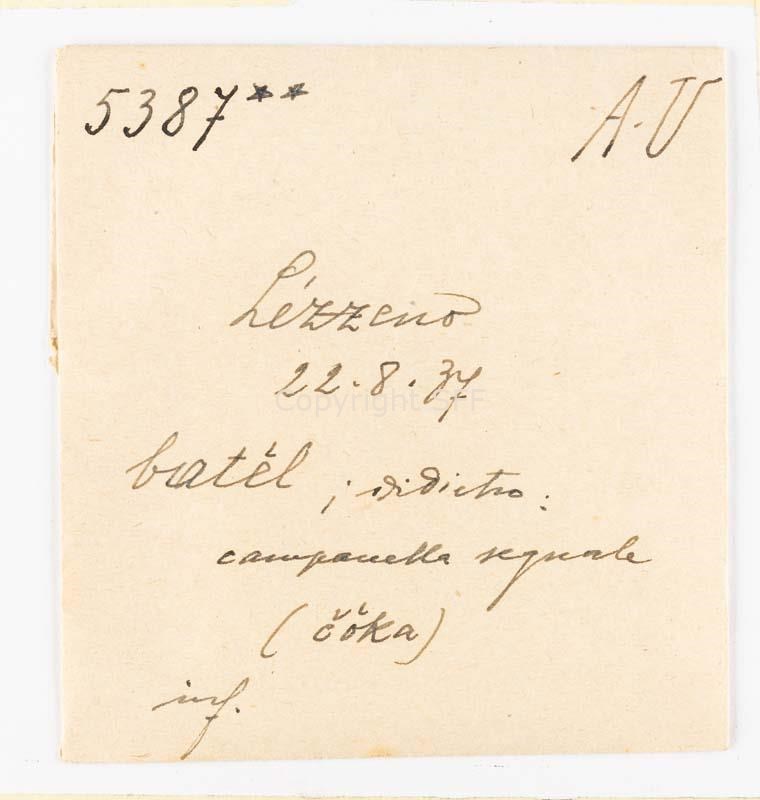 5387** A.U
Lézzeno
22.8.37
batèl ; di dietro :
campanella segnale
(čòka)
inf.
Copyright SFF